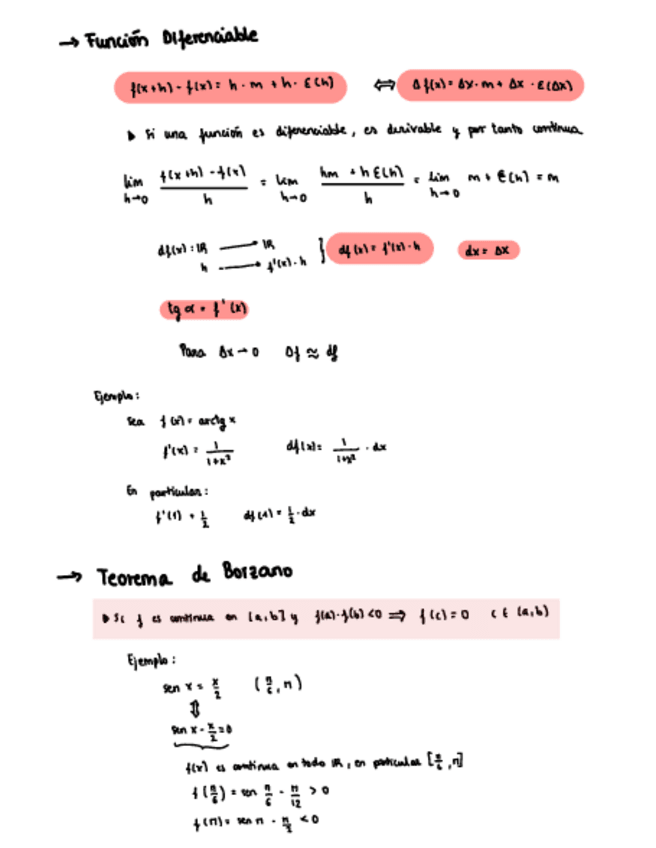 → Función Diferenciable
f(x+h) - f(x) = h · m + h · ε(h) ⇔ Δf(x) = Δx · m + Δx · ε(Δx)
▸ Si una función es diferenciable, es derivable y por tanto continua
lim h→0 (f(x+h) - f(x))/h = lim h→0 (hm + h ε(h))/h = lim h→0 m + ε(h) = m
df(x) : ℝ → ℝ } df(x) = f'(x) · h dx = Δx
h ⇢ f'(x) · h
tg α = f'(x)
Para Δx → 0 Δf ≈ df
Ejemplo:
Sea f(x) = arctg x
f'(x) = 1/(1+x²) df(x) = 1/(1+x²) · dx
En particular:
f'(1) = 1/2 df(1) = 1/2 · dx
→ Teorema de Borzano
▸ Si f es continua en [a,b] y f(a)·f(b) < 0 ⇒ f(c) = 0 c ∈ (a,b)
Ejemplo:
sen x = x/2 (π/6, π)
⇕
sen x - x/2 = 0
f(x) es continua en todo ℝ, en particular [π/6, π]
f(π/6) = sen π/6 - π/12 > 0
f(π) = sen π - π/2 < 0